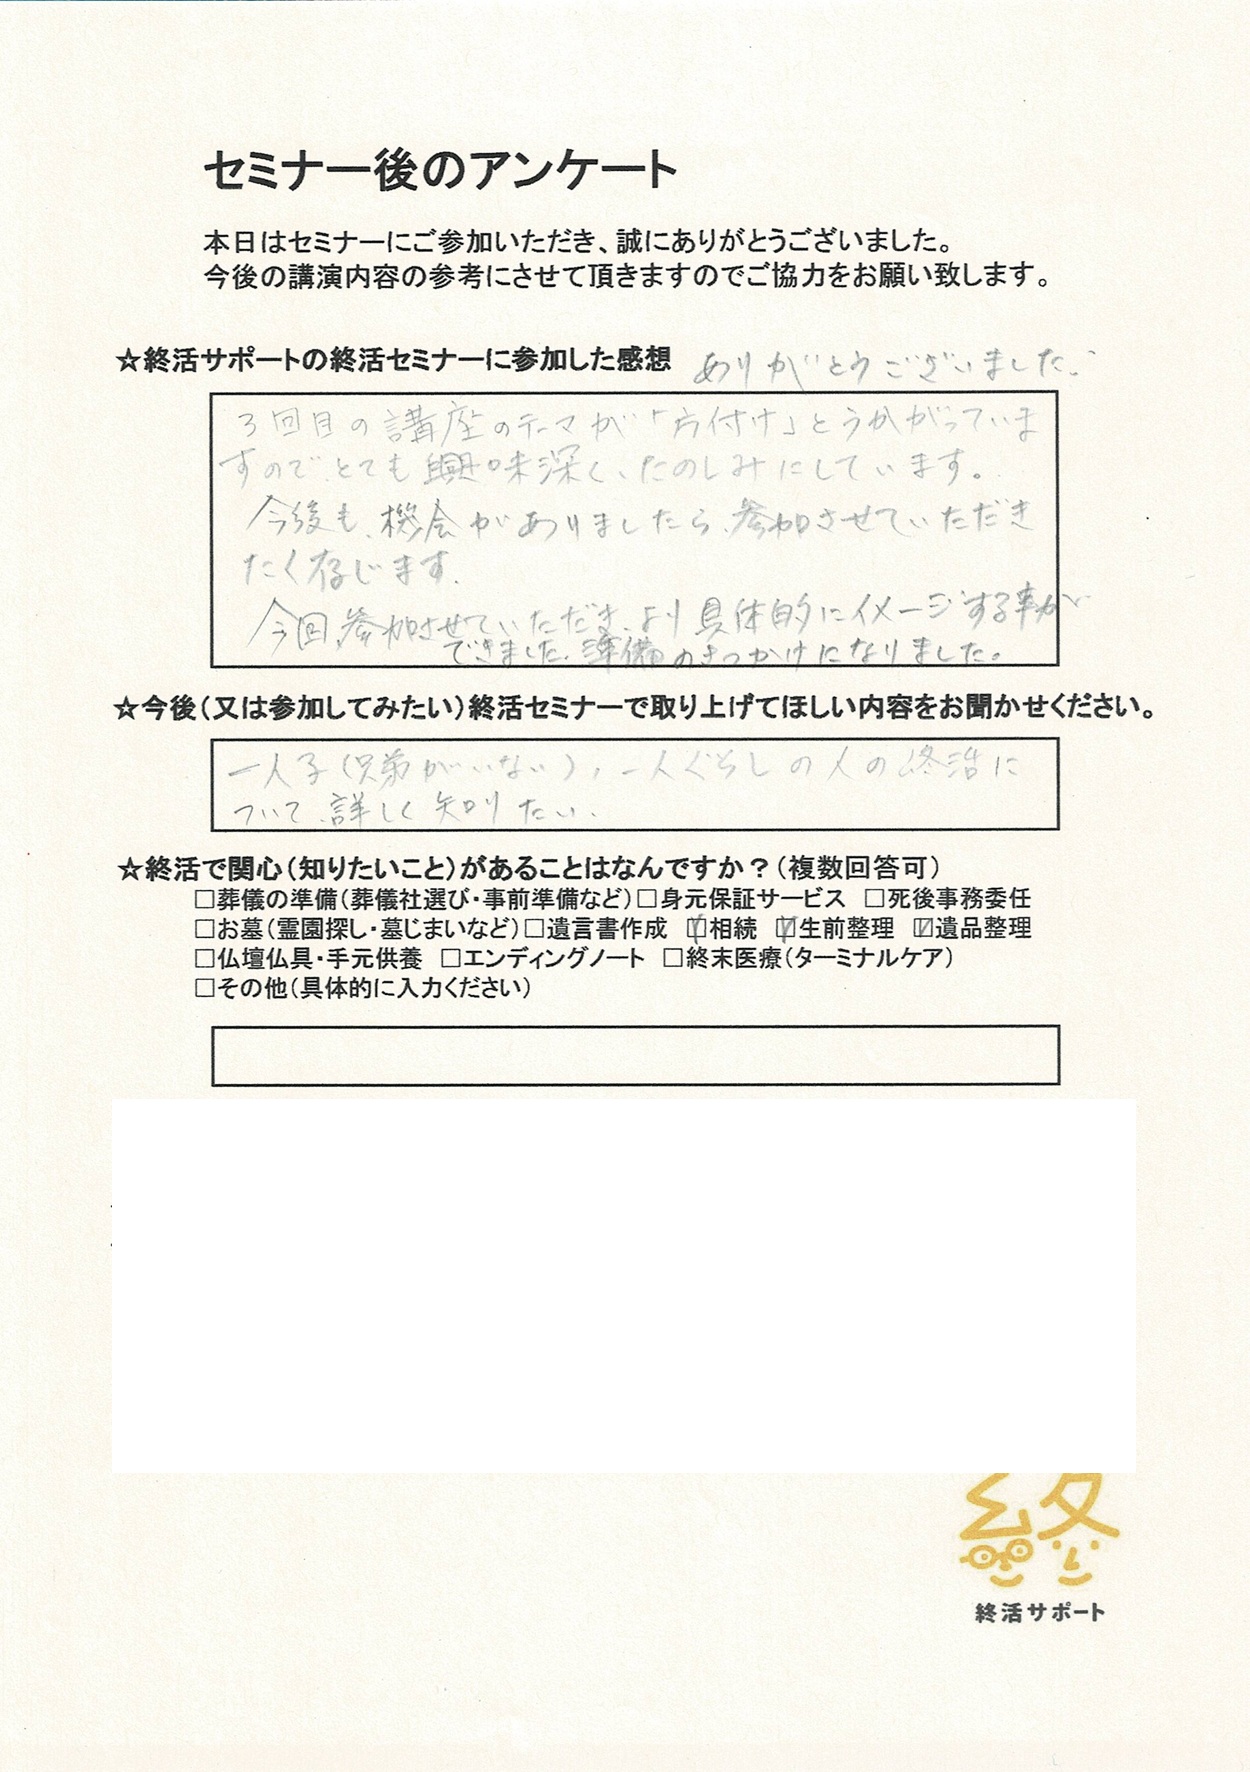 セミナー後のアンケート
本日はセミナーにご参加いただき、誠にありがとうございました。
今後の講演内容の参考にさせて頂きますのでご協力をお願い致します。
☆終活サポートの終活セミナーに参加した感想 ありがとうございました。
3回目の講座のテーマが「片付け」とうかがっていま
すので、とても興味深く、たのしみにしています。
今後も、機会がありましたら、参加させていただき
たく存じます。
今回、参加させていただき、より具体的にイメージする事が
できました。準備のきっかけになりました。
☆今後(又は参加してみたい)終活セミナーで取り上げてほしい内容をお聞かせください。
一人子(兄弟がいない)、一人ぐらしの人の終活に
ついて、詳しく知りたい。
☆終活で関心(知りたいこと)があることはなんですか?(複数回答可)
□葬儀の準備(葬儀社選び・事前準備など)□身元保証サービス □死後事務委任
□お墓(霊園探し・墓じまいなど)□遺言書作成 ☑相続 ☑生前整理 ☑遺品整理
□仏壇仏具・手元供養 □エンディングノート □終末医療(ターミナルケア)
□その他(具体的に入力ください)
終
終活サポート